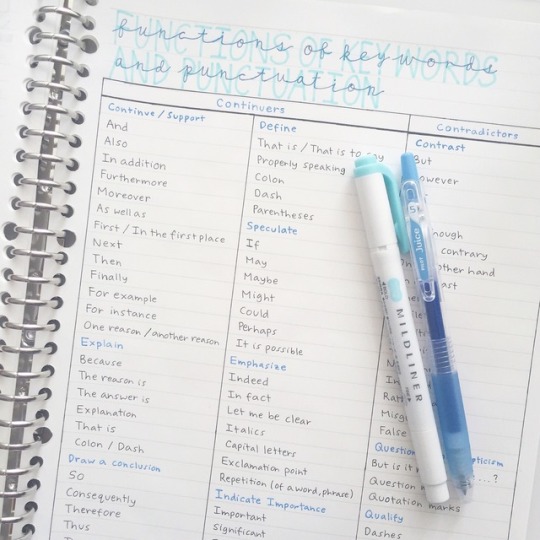 functions of key words
and punctuation
FUNCTIONS OF KEY WORDS
AND PUNCTUATION
Continuers
Continue / Support
And
Also
In addition
Furthermore
Moreover
As well as
First / In the first place
Next
Then
Finally
For example
For instance
One reason / another reason
Explain
Because
The reason is
The answer is
Explanation
That is
Colon / Dash
Draw a conclusion
So
Consequently
Therefore
Thus
Define
That is / That is to say
Properly speaking
Colon
Dash
Parentheses
Speculate
If
May
Maybe
Might
Could
Perhaps
It is possible
Emphasize
Indeed
In fact
Let me be clear
Italics
Capital letters
Exclamation point
Repetition (of a word, phrase)
Indicate Importance
Important
Significant
Contradictors
Contrast
But
contrary
hand
False
But is it
...?
Question
Quotation marks
Qualify
Dashes
MILDLINER
Juice